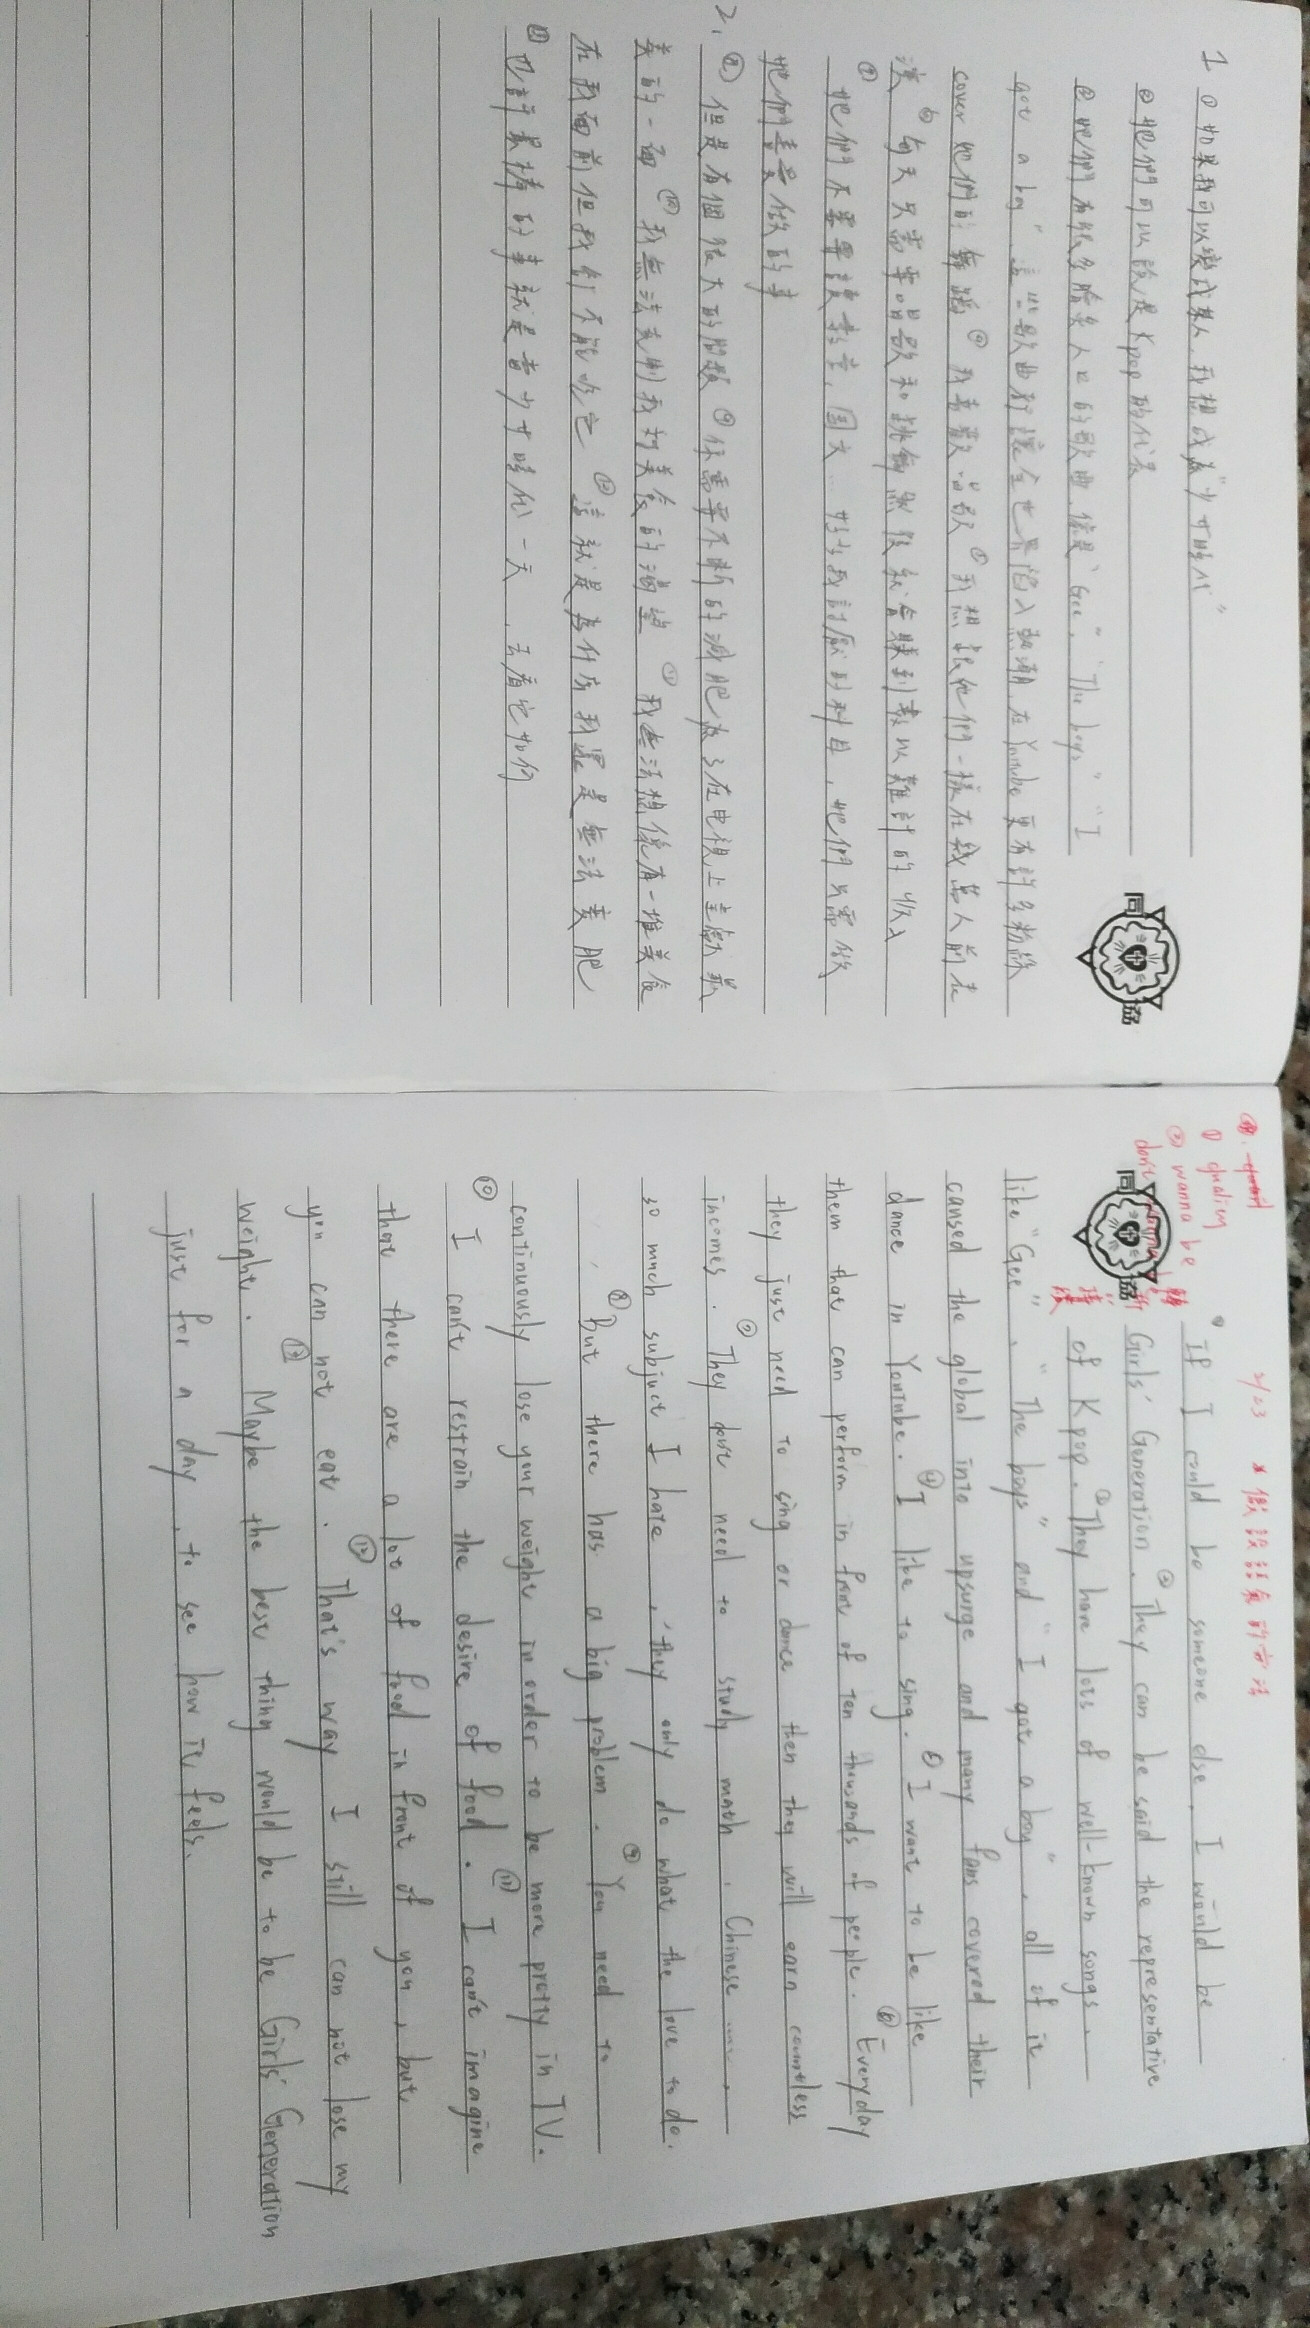 1 ① 如果我可以變成某人,我想成為"少女時代"
② 她們可以說是Kpop的代表
③ 她們有很多膾炙人口的歌曲,像是"Gee","The boys" "I
got a boy" 這些歌曲都讓全世界陷入熱潮,在Youtube更有許多粉絲
cover 她們的舞蹈 ④ 我喜歡唱歌 ⑤ 我想跟他們一樣在幾萬人前表
演 ⑥ 每天只需要唱歌和跳舞然後就會賺到難以計的收入
⑦ 她們不需要讀數學,國文... 她們只需做
她們喜愛做的事
2. ⑧ 但是有個很大的問題 ⑨ 你需要不斷的減肥為了在電視上呈獻最
美的一面 ⑩ 我無法克制我對美食的渴望 ⑪ 我無法想像有一堆美食
在我面前但我們不能吃它 ⑫ 這就是為什麼我還是無法變肥
⑬ 也許最棒的事就是當少女時代一天,去看它如何
同 協
2/23 * 做設計家的方法
① quality
② wanna be
同 協
① If I could be someone else, I would be
Girls' Generation. ② They can be said the representative
of Kpop. ③ They have lots of well-known songs,
like "Gee", "The boys" and "I got a boy", all of it
caused the global into upsurge and many fans covered their
dance in YouTube. ④ I like to sing. ⑤ I want to be like
them that can perform in front of ten thousands of people. ⑥ Everyday
they just need to sing or dance then they will earn countless
incomes. ⑦ They don't need to study math, Chinese ......,
so much subject I hate, they only do what the love to do.
⑧ But there has a big problem. ⑨ You need to
continuously lose your weight in order to be more pretty in TV.
⑩ I can't restrain the desire of food. ⑪ I can't imagine
that there are a lot of food in front of you, but
you can not eat. ⑫ That's way I still can not lose my
weight. ⑬ Maybe the best thing would be to be Girls' Generation
just for a day, to see how it feels.